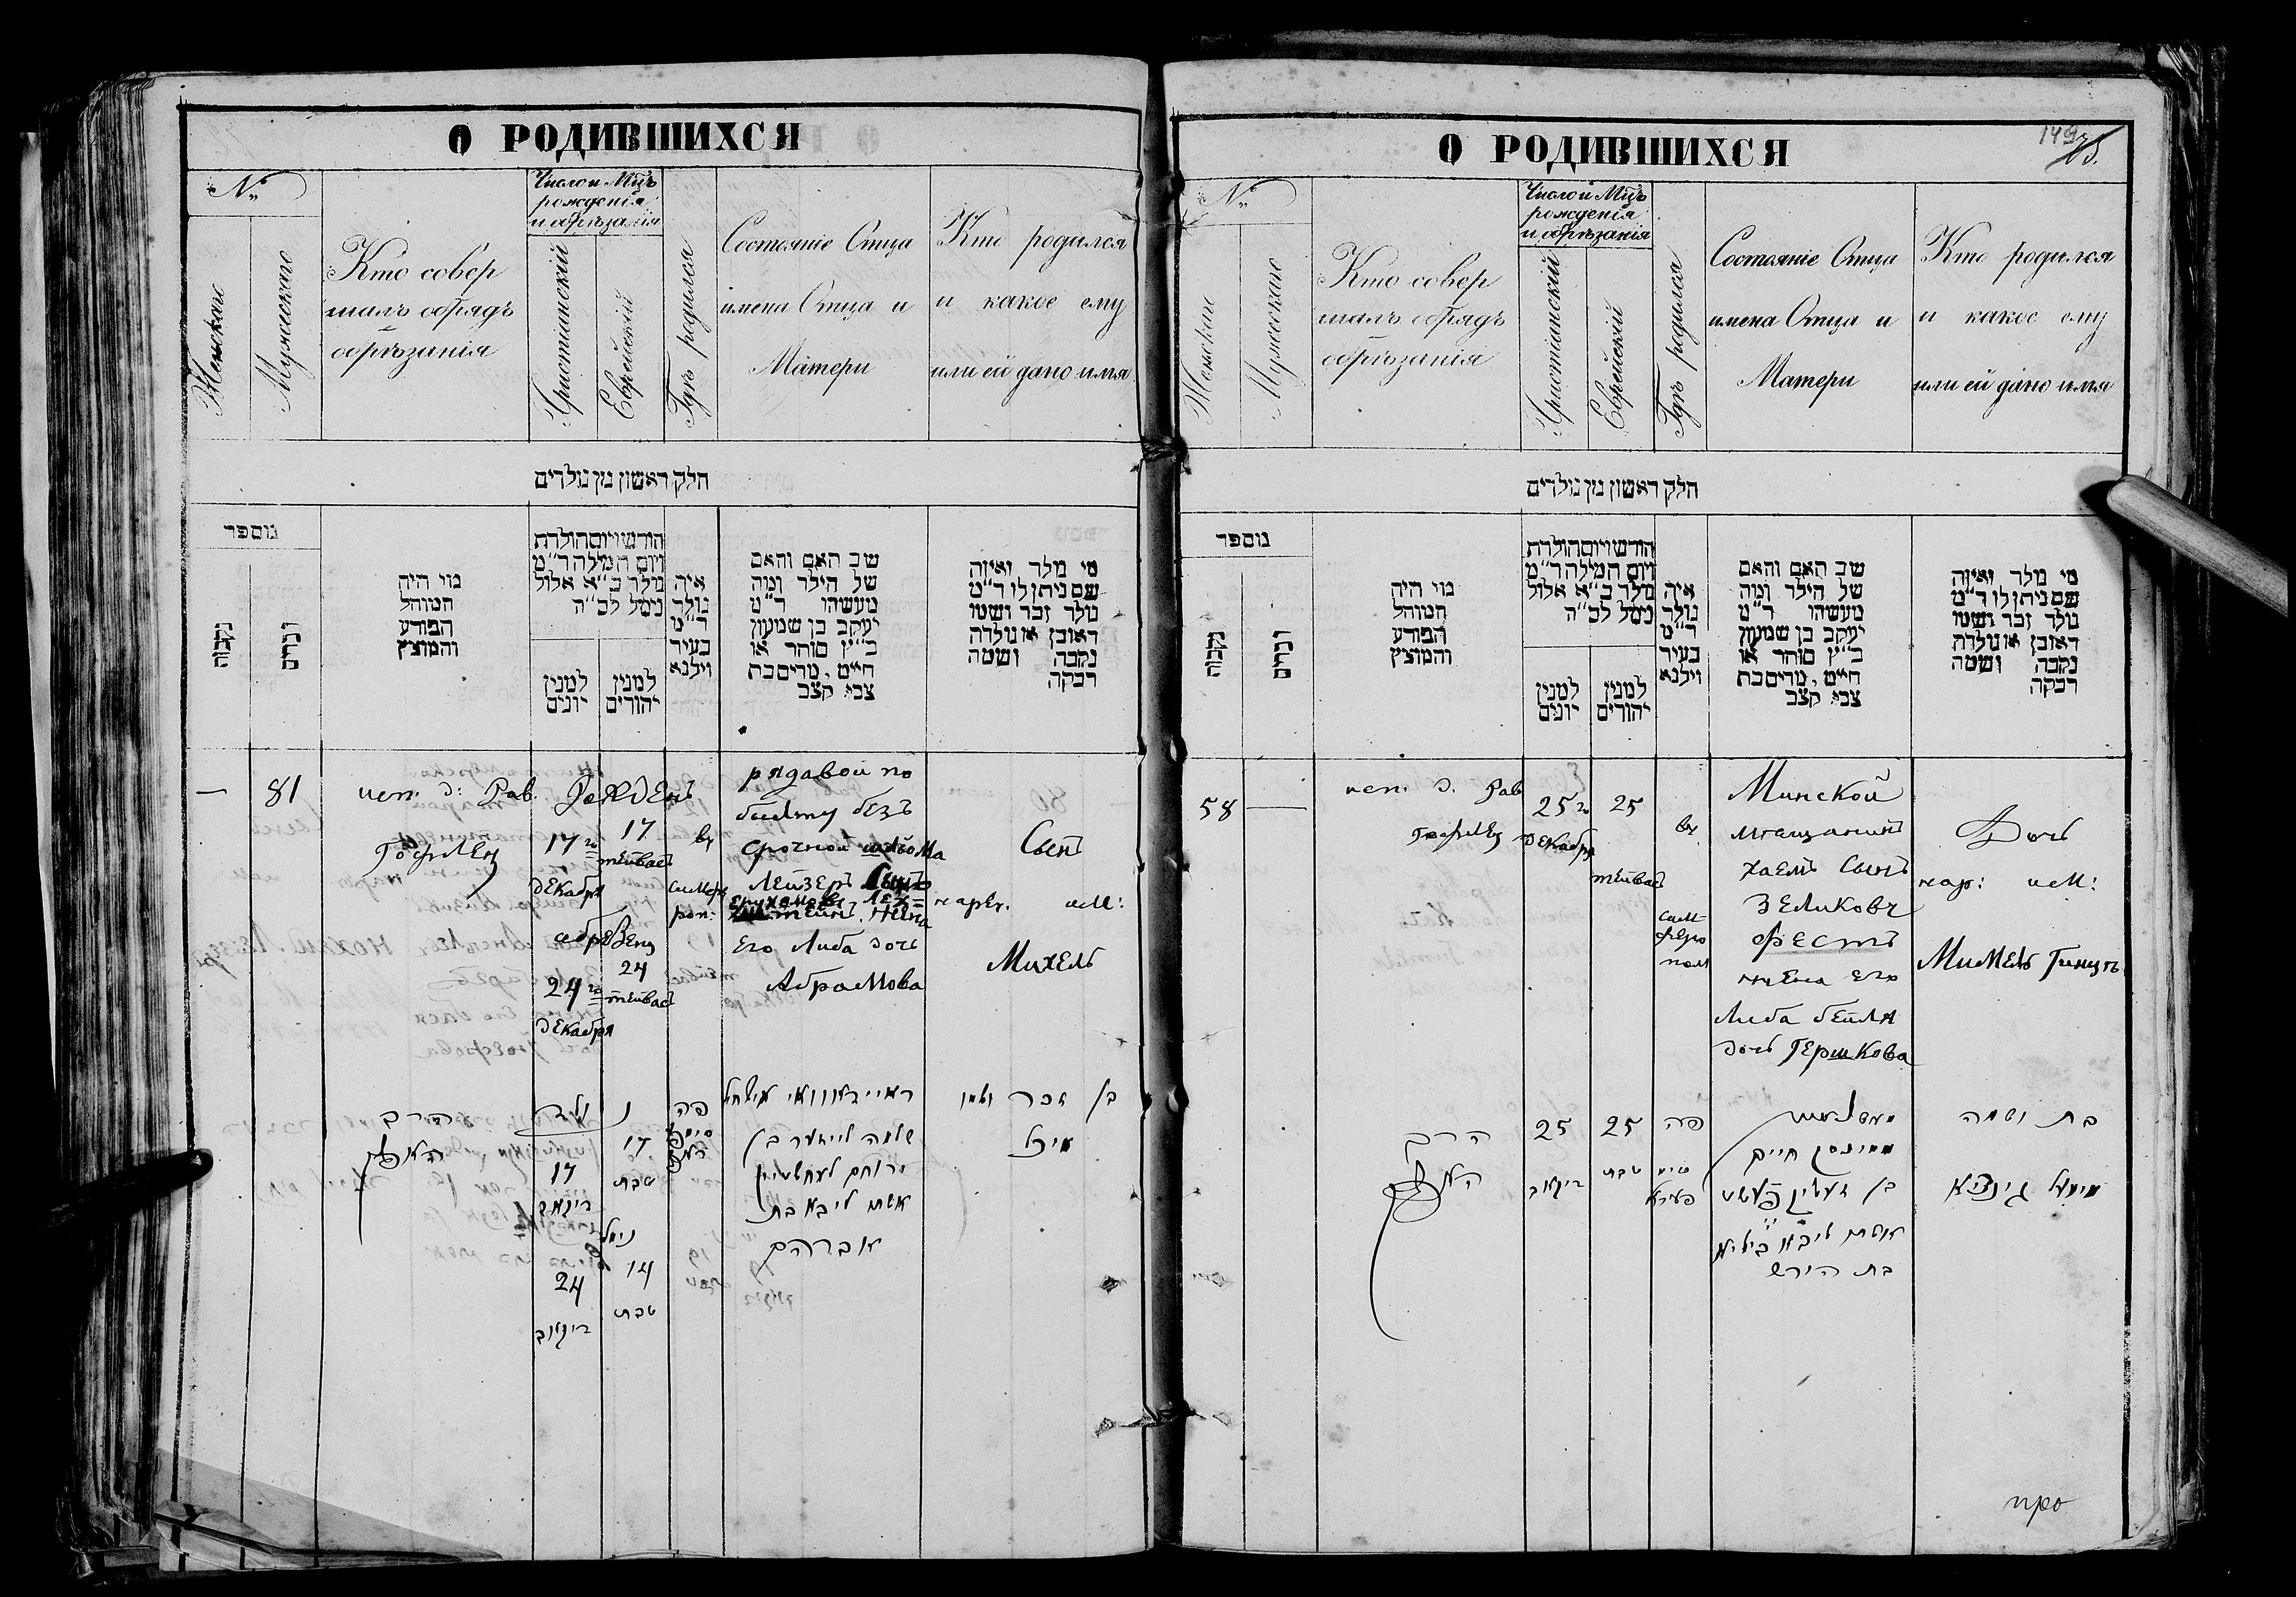 О РОДИВШИХСЯ
№
Женскаго
Мужескаго
Кто совер
шалъ обрядъ
обрѣзанія
Число и Мцъ
рожденія
и обрѣзанія
Христіанскій
Еврейскій
Гдѣ родился
Состояніе Отца
имена Отца и
Матери
Кто родился
и какое ему
или ей дано имя
חלק ראשון מן נולדים
מוספר
נקבות
זכרים
מי היה
המוהל
הפורע
והמוצץ
חודש ויום הולדת
ויום המילה ר״מ
נולד כ״א אלול
נימל לכ״ה
למנין
יונים
למנין
יהודים
איה
נולד
ר״מ
בעיר
ווילנא
שב האם והאם
של הילד ומה
מעשהו ר״מ
יעקב בן שמעון
כ״ץ סוחר או
חייט, מרים בת
צבי קצב
מי נולד ואיזה
שם ניתן לו ר״מ
נולד זכר ושמו
ראובן או נולדה
נקבה ושמה
רבקה
—
81
исп. д: Рав.
Гофлец
Рожденъ
17го
Декабря
17
тейвасъ
обрезец
24го
Декабря
24
тейвасъ
въ
симфе
роп:
рядавой по
билету безъ
срочной шлйома
Лейзеръ Сынъ
Ерухамовъ Лех=
штейнъ. Жена
Его Либа дочь
Абрамова
Сынъ
наречъ. им:
Михель
הרב
17
17
טבת
נימל
24
14
טבת
פה
שלמה לייזער בן
ירוחם לעחשטיין
אשתו ליבא בת
אברהם
בן זכר ושמו
מיכל
О РОДИВШИХСЯ
149
75.
№
Женскаго
Мужескаго
Кто совер
шалъ обрядъ
обрѣзанія
Число и Мцъ
рожденія
и обрѣзанія
Христіанскій
Еврейскій
Гдѣ родился
Состояніе Отца
имена Отца и
Матери
Кто родился
и какое ему
или ей дано имя
חלק ראשון מן נולדים
מוספר
נקבות
זכרים
מי היה
המוהל
הפורע
והמוצץ
חודש ויום הולדת
ויום המילה ר״מ
נולד כ״א אלול
נימל לכ״ה
למנין
יונים
למנין
יהודים
איה
נולד
ר״מ
בעיר
ווילנא
שב האם והאם
של הילד ומה
מעשהו ר״מ
יעקב בן שמעון
כ״ץ סוחר או
חייט, מרים בת
צבי קצב
מי נולד ואיזה
שם ניתן לו ר״מ
נולד זכר ושמו
ראובן או נולדה
נקבה ושמה
רבקה
58
—
исп. д. Рав
Гофлец
25го
Декабря
25
тейвасъ
въ
сим-
феро
поле
Минской
мещанинъ
Хаемъ Сынъ
Зеликовъ
Фестъ
жена его
Либа бейля
дочь Гершкова
Дочь
нар: им:
Мимель Гинцъ
הרב
25
25
טבת
פה
חיים
אשתו ליבא ביילא
בת הירש
בת ושמה
про